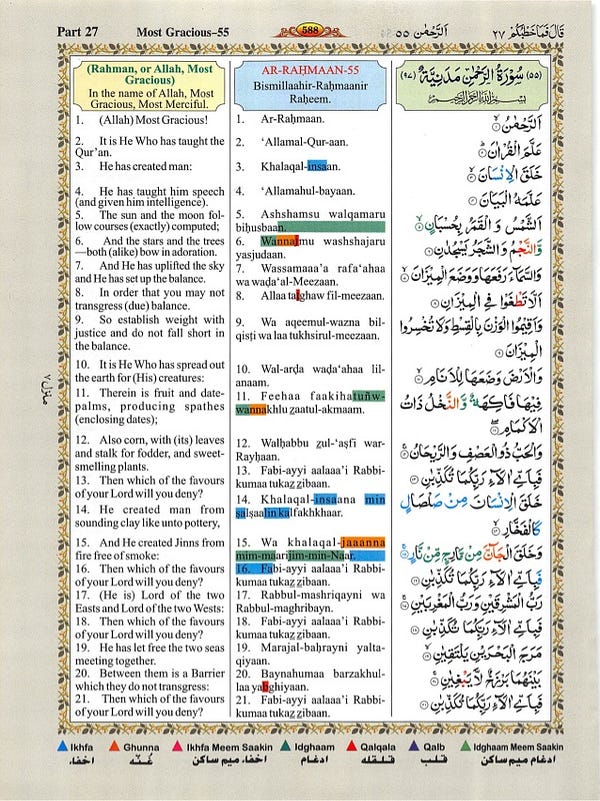 Part 27 Most Gracious–55 588 اَلرَّحْمٰن ۵۵ قَالَ فَمَا خَطْبُكُمْ ۲۷
(Rahman, or Allah, Most
Gracious)
In the name of Allah, Most
Gracious, Most Merciful.
1. (Allah) Most Gracious!
2. It is He Who has taught the
Qur'an.
3. He has created man:
4. He has taught him speech
(and given him intelligence).
5. The sun and the moon fol-
low courses (exactly) computed;
6. And the stars and the trees
—both (alike) bow in adoration.
7. And He has uplifted the sky
and He has set up the balance.
8. In order that you may not
transgress (due) balance.
9. So establish weight with
justice and do not fall short in
the balance.
10. It is He Who has spread out
the earth for (His) creatures:
11. Therein is fruit and date-
palms, producing spathes
(enclosing dates);
12. Also corn, with (its) leaves
and stalk for fodder, and sweet-
smelling plants.
13. Then which of the favours
of your Lord will you deny?
14. He created man from
sounding clay like unto pottery,
15. And He created Jinns from
fire free of smoke:
16. Then which of the favours
of your Lord will you deny?
17. (He is) Lord of the two
Easts and Lord of the two Wests:
18. Then which of the favours
of your Lord will you deny?
19. He has let free the two seas
meeting together.
20. Between them is a Barrier
which they do not transgress:
21. Then which of the favours
of your Lord will you deny?
AR-RAḤMAAN-55
Bismillaahir-Raḥmaanir
Raḥeem.
1. Ar-Raḥmaan.
2. ‘Allamal-Qur-aan.
3. Khalaqal-insaan.
4. ‘Allamahul-bayaan.
5. Ashshamsu walqamaru
biḥusbaan.
6. Wannajmu washshajaru
yasjudaan.
7. Wassamaaa’a rafa‘ahaa
wa waḍa‘al-Meezaan.
8. Allaa taṭghaw fil-meezaan.
9. Wa aqeemul-wazna bil-
qisṭi wa laa tukhsirul-meezaan.
10. Wal-arḍa waḍa‘ahaa lil-
anaam.
11. Feehaa faakihatuñw-
wannakhlu ẕaatul-akmaam.
12. Walḥabbu ẕul-‘aṣfi war-
Rayḥaan.
13. Fabi-ayyi aalaaa’i Rabbi-
kumaa tukaẕẕibaan.
14. Khalaqal-insaana min
ṣalṣaalin kalfakhkhaar.
15. Wa khalaqal-jaaanna
mim-maarijim-min-Naar.
16. Fabi-ayyi aalaaa’i Rabbi-
kumaa tukaẕẕibaan.
17. Rabbul-mashriqayni wa
Rabbul-maghribayn.
18. Fabi-ayyi aalaaa’i Rabbi-
kumaa tukaẕẕibaan.
19. Marajal-baḥrayni yalta-
qiyaan.
20. Baynahumaa barzakhul-
laa yabghiyaan.
21. Fabi-ayyi aalaaa’i Rabbi-
kumaa tukaẕẕibaan.
(۵۵) سُوْرَةُ الرَّحْمٰنِ مَدَنِيَّةٌ (۹۷)
بِسْمِ اللهِ الرَّحْمٰنِ الرَّحِيْمِ
اَلرَّحْمٰنُ ۙ۱
عَلَّمَ الْقُرْاٰنَ ؕ۲
خَلَقَ الْاِنْسَانَ ۙ۳
عَلَّمَهُ الْبَيَانَ ۴
اَلشَّمْسُ وَ الْقَمَرُ بِحُسْبَانٍ ۪۵
وَّالنَّجْمُ وَ الشَّجَرُ يَسْجُدٰنِ ۶
وَالسَّمَآءَ رَفَعَهَا وَوَضَعَ الْمِيْزَانَ ۙ۷
اَلَّا تَطْغَوْا فِى الْمِيْزَانِ ۸
وَاَقِيْمُوا الْوَزْنَ بِالْقِسْطِ وَلَا تُخْسِرُوا
الْمِيْزَانَ ۹
وَالْاَرْضَ وَضَعَهَا لِلْاَنَامِ ۙ۱۰
فِيْهَا فَاكِهَةٌ وَّالنَّخْلُ ذَاتُ
الْاَكْمَامِ ۖ۱۱
وَالْحَبُّ ذُوالْعَصْفِ وَالرَّيْحَانُ ۚ۱۲
فَبِاَىِّ اٰلَآءِ رَبِّكُمَا تُكَذِّبٰنِ ۱۳
خَلَقَ الْاِنْسَانَ مِنْ صَلْصَالٍ
كَالْفَخَّارِ ۙ۱۴
وَخَلَقَ الْجَآنَّ مِنْ مَّارِجٍ مِّنْ نَّارٍ ۚ۱۵
فَبِاَىِّ اٰلَآءِ رَبِّكُمَا تُكَذِّبٰنِ ۱۶
رَبُّ الْمَشْرِقَيْنِ وَرَبُّ الْمَغْرِبَيْنِ ۚ۱۷
فَبِاَىِّ اٰلَآءِ رَبِّكُمَا تُكَذِّبٰنِ ۱۸
مَرَجَ الْبَحْرَيْنِ يَلْتَقِيٰنِ ۙ۱۹
بَيْنَهُمَا بَرْزَخٌ لَّا يَبْغِيٰنِ ۚ۲۰
فَبِاَىِّ اٰلَآءِ رَبِّكُمَا تُكَذِّبٰنِ ۲۱
منزل ۷
Ikhfa Ghunna Ikhfa Meem Saakin Idghaam Qalqala Qalb Idghaam Meem Saakin
اخفاء غُنّه اخفاء میم ساکن ادغام قلقله قلب ادغام میم ساکن